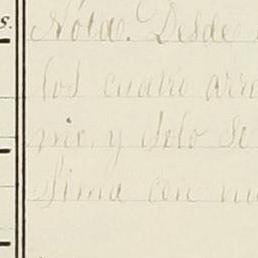 s. Nota. Desde
los cuatro arro
mo, y solo se
sima con